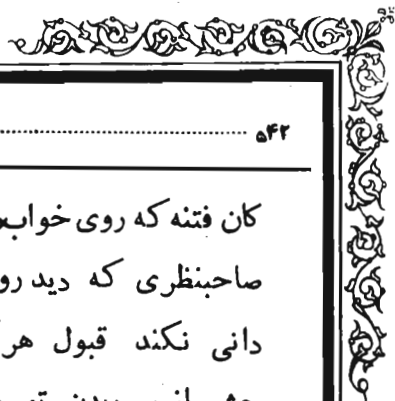 ۵۴۲
کان فتنه که روی خواب
صاحبنظری که دید رو
دانی نکند قبول هر